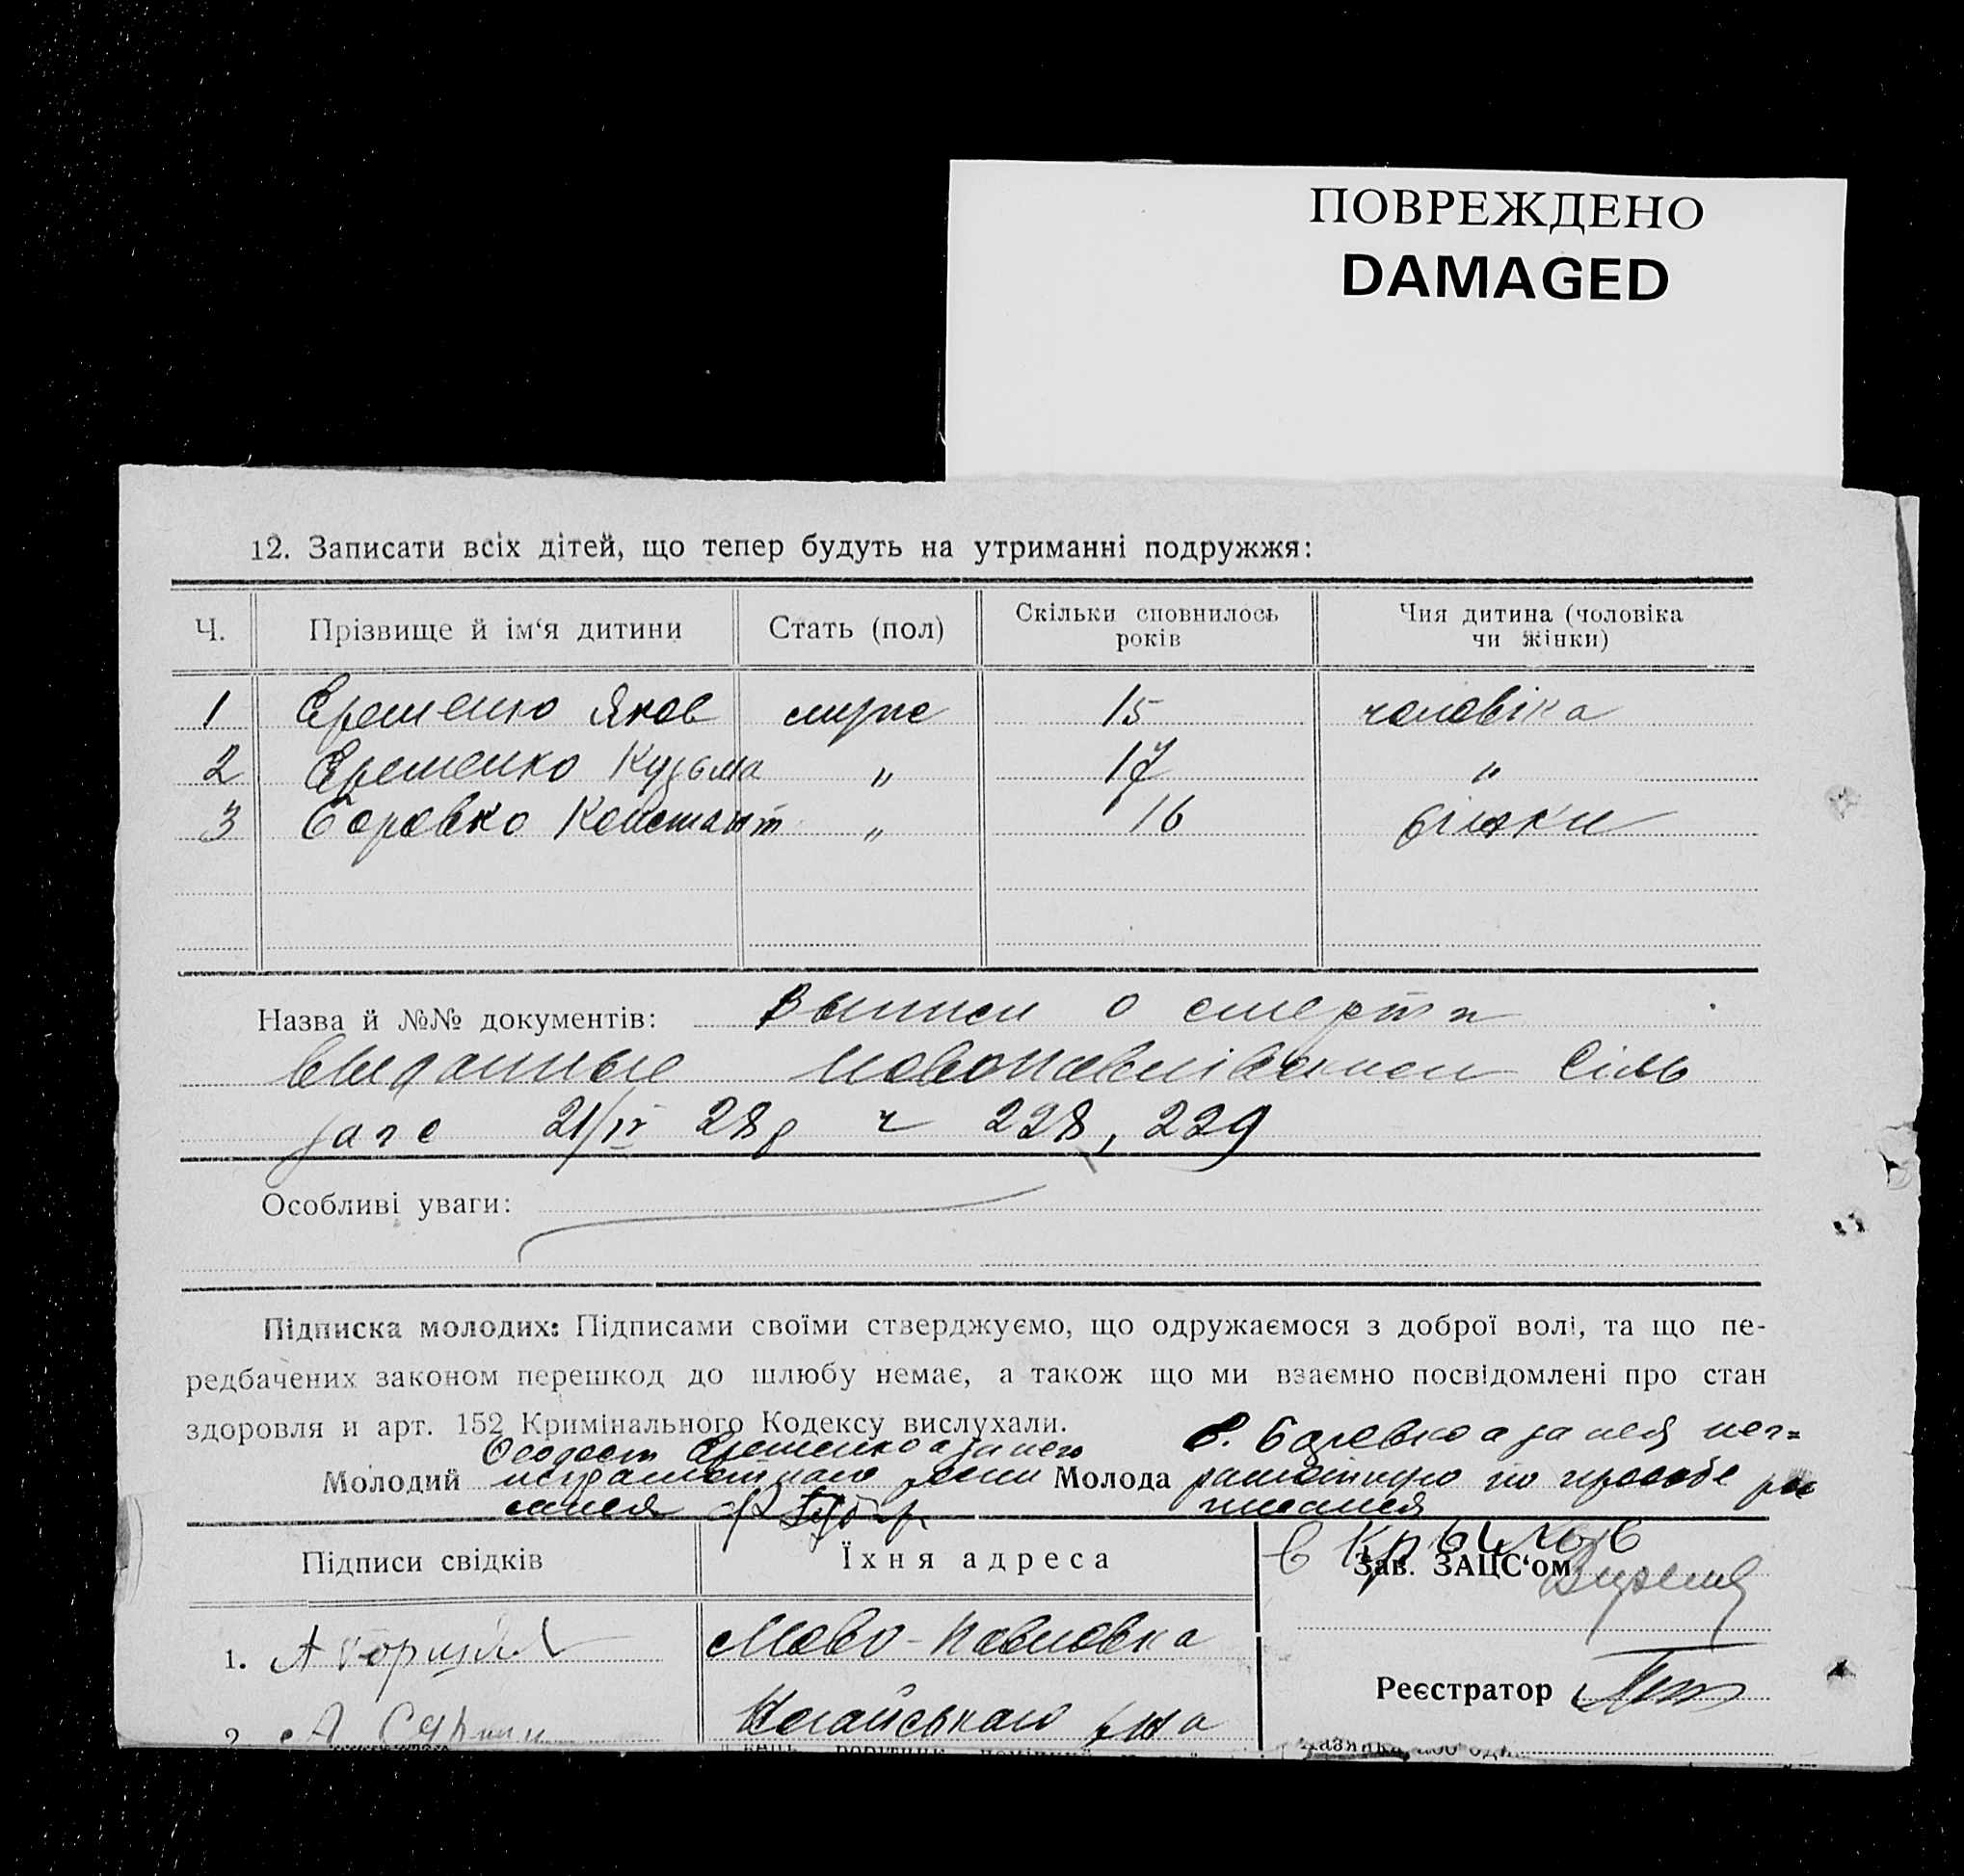 ПОВРЕЖДЕНО
DAMAGED
12. Записати всіх дітей, що тепер будуть на утриманні подружжя:
Ч. Прізвище й ім‘я дитини Стать (пол) Скільки сповнилось років Чия дитина (чоловіка чи жінки)
1 Еременко Яков мужс 15 чоловіка
2 Еременко Кузьма „ 17 „
3 Боровко Констант „ 16 жінки
Назва й №№ документів: Выписи о смерти
выданные Новопавлівскиси Сіль
загс 21/IV 28 р ч 228, 229
Особливі уваги:
Підписка молодих: Підписами своїми стверджуємо, що одружаємося з доброї волі, та що пе-
редбачених законом перешкод до шлюбу немає, а також що ми взаємно посвідомлені про стан
здоровля и арт. 152 Кримінального Кодексу вислухали.
Молодий Феодост Еременко а за него
неграмотного
Молода Боревко а за нея нег=
рамотную по просьбе рас
писался
в Крылов
Підписи свідків Їхня адреса Зав. ЗАЦС‘ом
1. А Ново-Павловка
Реєстратор
2. А Ногайського р-на